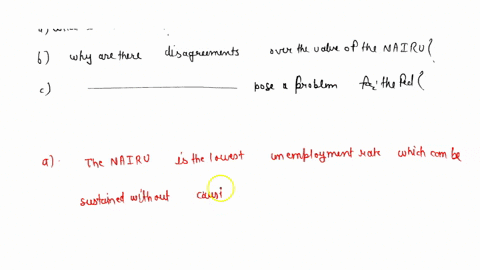 b) why are there disagreements over the value of the NAIRU?
c) ____________ pose a problem for the Fed?
a). The NAIRU is the lowest unemployment rate which can be
sustained without causi